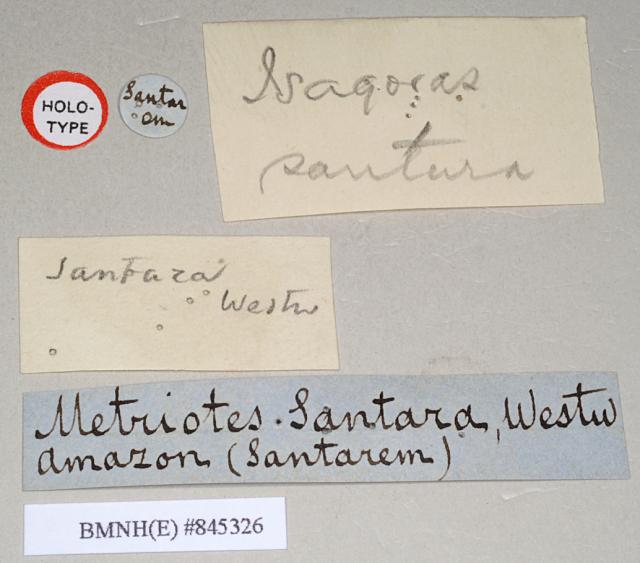 HOLO-
TYPE
Santar
em
Isagoras
santara
Santara
Westw
Metriotes. Santara, Westw
Amazon (Santarem)
BMNH(E) #845326